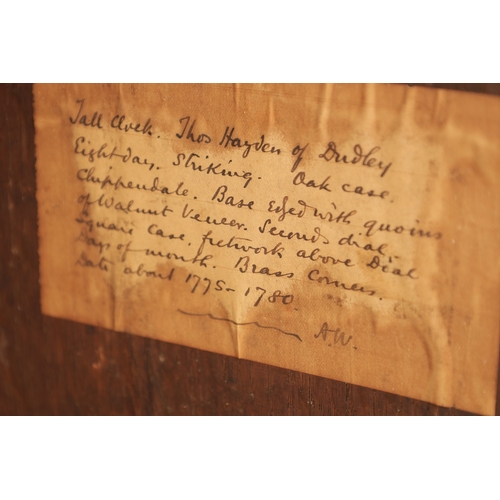 Tall Clock. Thos Hayden of Dudley
Eight day, Striking. Oak case.
Chippendale. Base Edged with quoins
of Walnut Veneer. Seconds dial,
Square Case, fretwork above Dial
Days of month. Brass Corners.
Date about 1775-1780.
A.W.